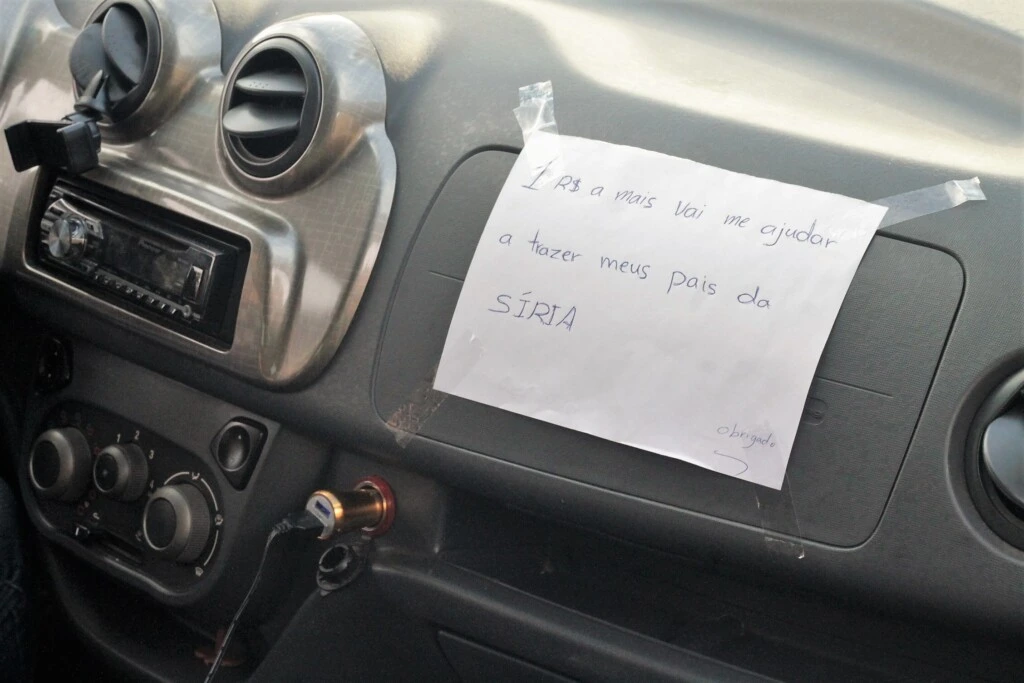 1 R$ a mais vai me ajudar
a trazer meus pais da
SÍRIA
obrigado
1 2
3